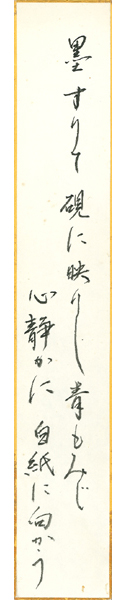 墨すりて 硯に映りし 青もみじ
心静かに 白紙に向かう